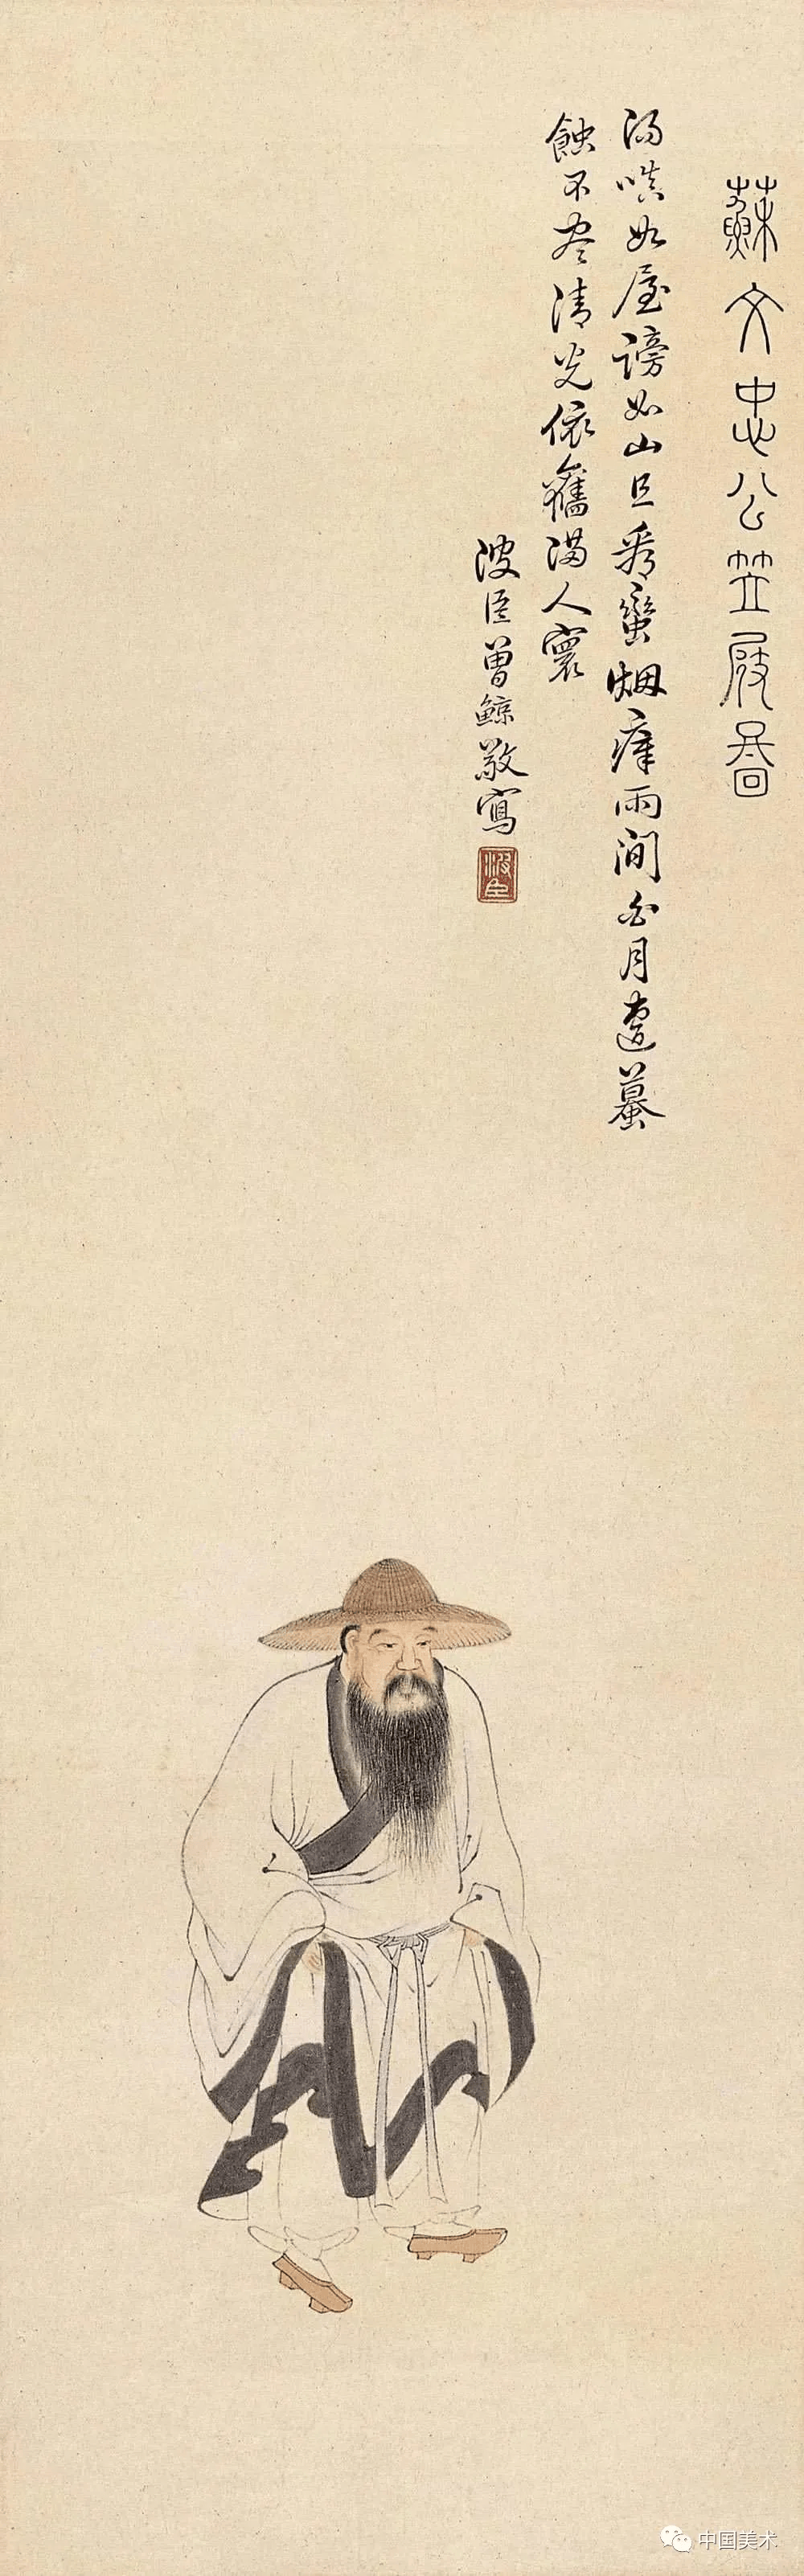 蘇文忠公笠屐圖
得嗔如屋謗如山且看蠻烟瘴雨间白月遭蟇
蝕不尽清光依舊满人寰
波臣曾鯨敬寫
波臣
中国美术